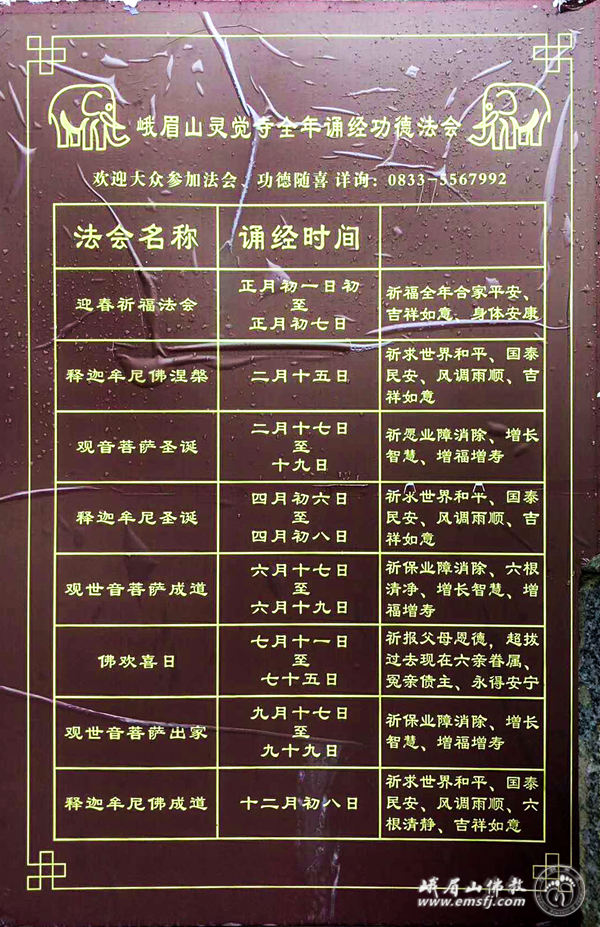 峨眉山灵觉寺全年诵经功德法会
欢迎大众参加法会、功德随喜 详询：0833-5567992
法会名称 诵经时间
迎春祈福法会
正月初一日初
至
正月初七日
祈福全年合家平安、
吉祥如意、身体安康
释迦牟尼佛涅槃
二月十五日
祈求世界和平、国泰
民安、风调雨顺、吉
祥如意
观音菩萨圣诞
二月十七日
至
十九日
祈愿业障消除、增长
智慧、增福增寿
释迦牟尼圣诞
四月初六日
至
四月初八日
祈求世界和平、国泰
民安、风调雨顺、吉
祥如意
观世音菩萨成道
六月十七日
至
六月十九日
祈保业障消除、六根
清净、增长智慧、增
福增寿
佛欢喜日
七月十一日
至
七十五日
祈报父母恩德，超拔
过去现在六亲眷属、
冤亲债主、永得安宁
观世音菩萨出家
九月十七日
至
九十九日
祈保业障消除、增长
智慧、增福增寿
释迦牟尼佛成道
十二月初八日
祈求世界和平、国泰
民安、风调雨顺、六
根清静、吉祥如意
峨眉山佛教
www.emsfj.com